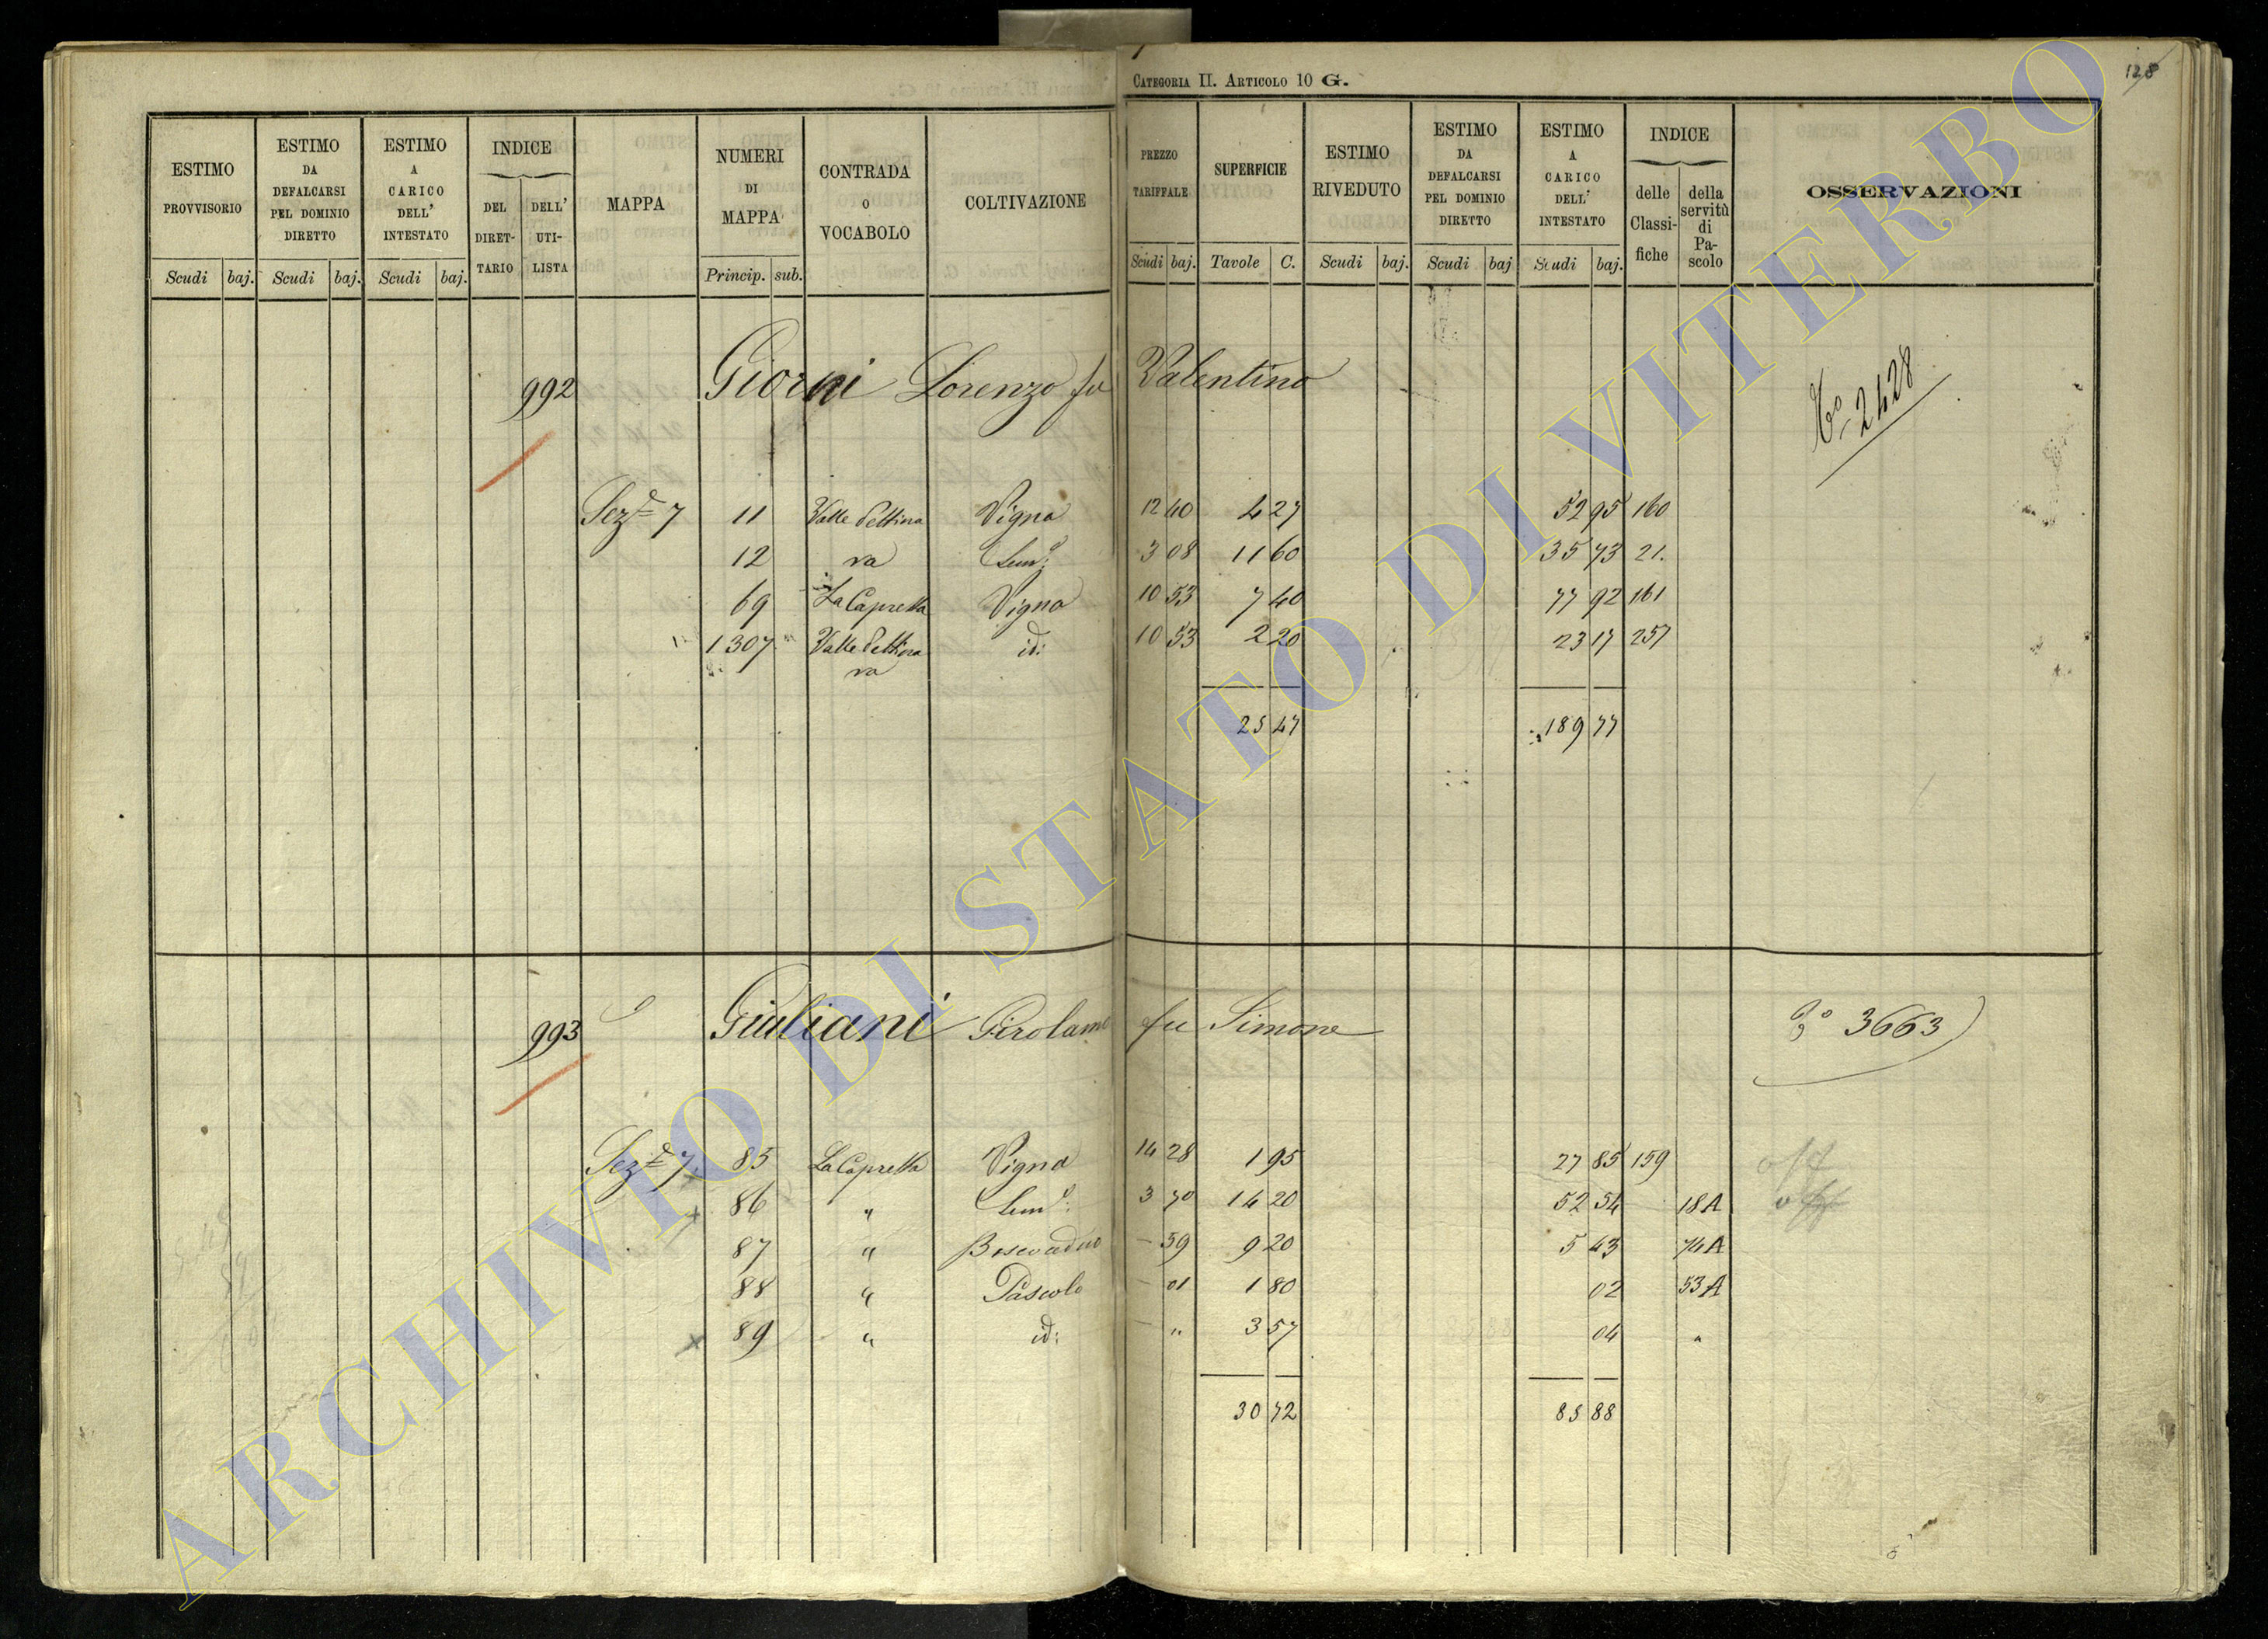 CATEGORIA II. ARTICOLO 10 G.
128
ESTIMO PROVVISORIO | ESTIMO DA DEFALCARSI PEL DOMINIO DIRETTO | ESTIMO A CARICO DELL' INTESTATO | INDICE DEL DIRET-TARIO | DELL' UTI-LISTA | MAPPA | NUMERI DI MAPPA | CONTRADA O VOCABOLO | COLTIVAZIONE | PREZZO TARIFFALE | SUPERFICIE | ESTIMO RIVEDUTO | ESTIMO DA DEFALCARSI PEL DOMINIO DIRETTO | ESTIMO A CARICO DELL' INTESTATO | INDICE delle Classi-fiche | della servitù di Pa-scolo | OSSERVAZIONI
Scudi baj. Scudi baj. Scudi baj. Princip. sub. Scudi baj. Tavole C. Scudi baj. Scudi baj Scudi baj.
992 Giorni Lorenzo fu Valentino No 2428
Sez.e 7 11 Valle Pettina Vigna 12 40 4 27 52 95 160
12 ra Semo: 3 08 11 60 35 73 21.
69 La Capretta Vigna 10 53 7 40 77 92 161
1307 Valle Pettina id: 10 53 2 20 23 17 257
ra
25 47 189 77
993 Giuliani Girolamo fu Simone 3663
Sez.e 7 85 La Capretta Vigna 14 28 1 95 27 85 159
86 " Semo: 3 70 14 20 52 54 18A
87 " Bosceduo - 59 9 20 5 43 74A
88 " Pascolo - 01 1 80 02 53A
89 " id: - " 3 57 04 "
30 72 85 88
ARCHIVIO DI STATO DI VITERBO